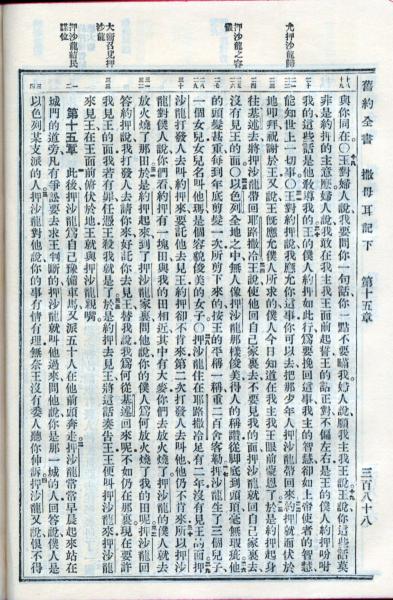 舊約全書 撒母耳記下 第十五章 三百八十八
允押沙龍歸
與你同在○王對婦人說我要問你一句話你一點不要瞞我婦人說願我主我王說王說你這些話莫
非是約押的主意麼婦人說我敢在我主我王面前起誓王的話正對不偏左右是王的僕人約押吩咐
我的這些話是他敎導我的王的僕人約押如此行爲要挽回這事我主的智慧卻如上帝使者的智慧
能知世上一切事○王對約押說我應允你這事你可以去把那少年人押沙龍帶回來約押就面伏於
地叩拜祝謝於王又說王旣應允僕人所求的僕人今日知道在我主我王眼前蒙恩了於是約押起身
往基述去將押沙龍帶回耶路撒冷王說使他回自己家裏去不要見我的面押沙龍就回自己家裏去
押沙龍之容
儀
沒有見王的面○以色列全地之中無人像押沙龍那樣俊美得人的稱讚從腳底到頭頂毫無瑕疵他
的頭髮甚重每到年底剪髮一次所剪下來的按王的平稱一稱重二百舍客勒押沙龍生了三個兒子
一個女兒女兒名叫他瑪是個容貌俊美的女子○押沙龍住在耶路撒冷足有二年沒有見王的面押
沙龍打發人去叫約押來要託他去見王約押卻不肯來第二次打發人去叫他他仍不肯來所以押沙
龍對僕人說你們看約押有一塊田與我的田相近其中有大麥你們去放火燒了押沙龍的僕人就去
放火燒了那田於是約押起來到了押沙龍家裏問他說你的僕人爲何放火燒了我的田呢押沙龍回
大衞召見押
沙龍
答約押說我打發人去請你來好託你去見王替我說我爲何從基述回來呢不如仍在那裏現在要許
我見王的面我若有罪任憑王殺我就是了於是約押去見王將這話奏告王王便叫押沙龍來押沙龍
來見王在王面前俯伏於地王就與押沙龍親嘴
押沙龍結民
謀位
第十五章 此後押沙龍爲自己豫備車馬又派五十人在他前頭奔走押沙龍常常早晨起來站在
城門的道旁凡有爭訟要求王判斷的押沙龍就叫他過來問他說你是那一城的人回答說僕人是
以色列某支派的人押沙龍對他說你的事有情有理無奈王沒有委人聽你伸訴押沙龍又說恨不得